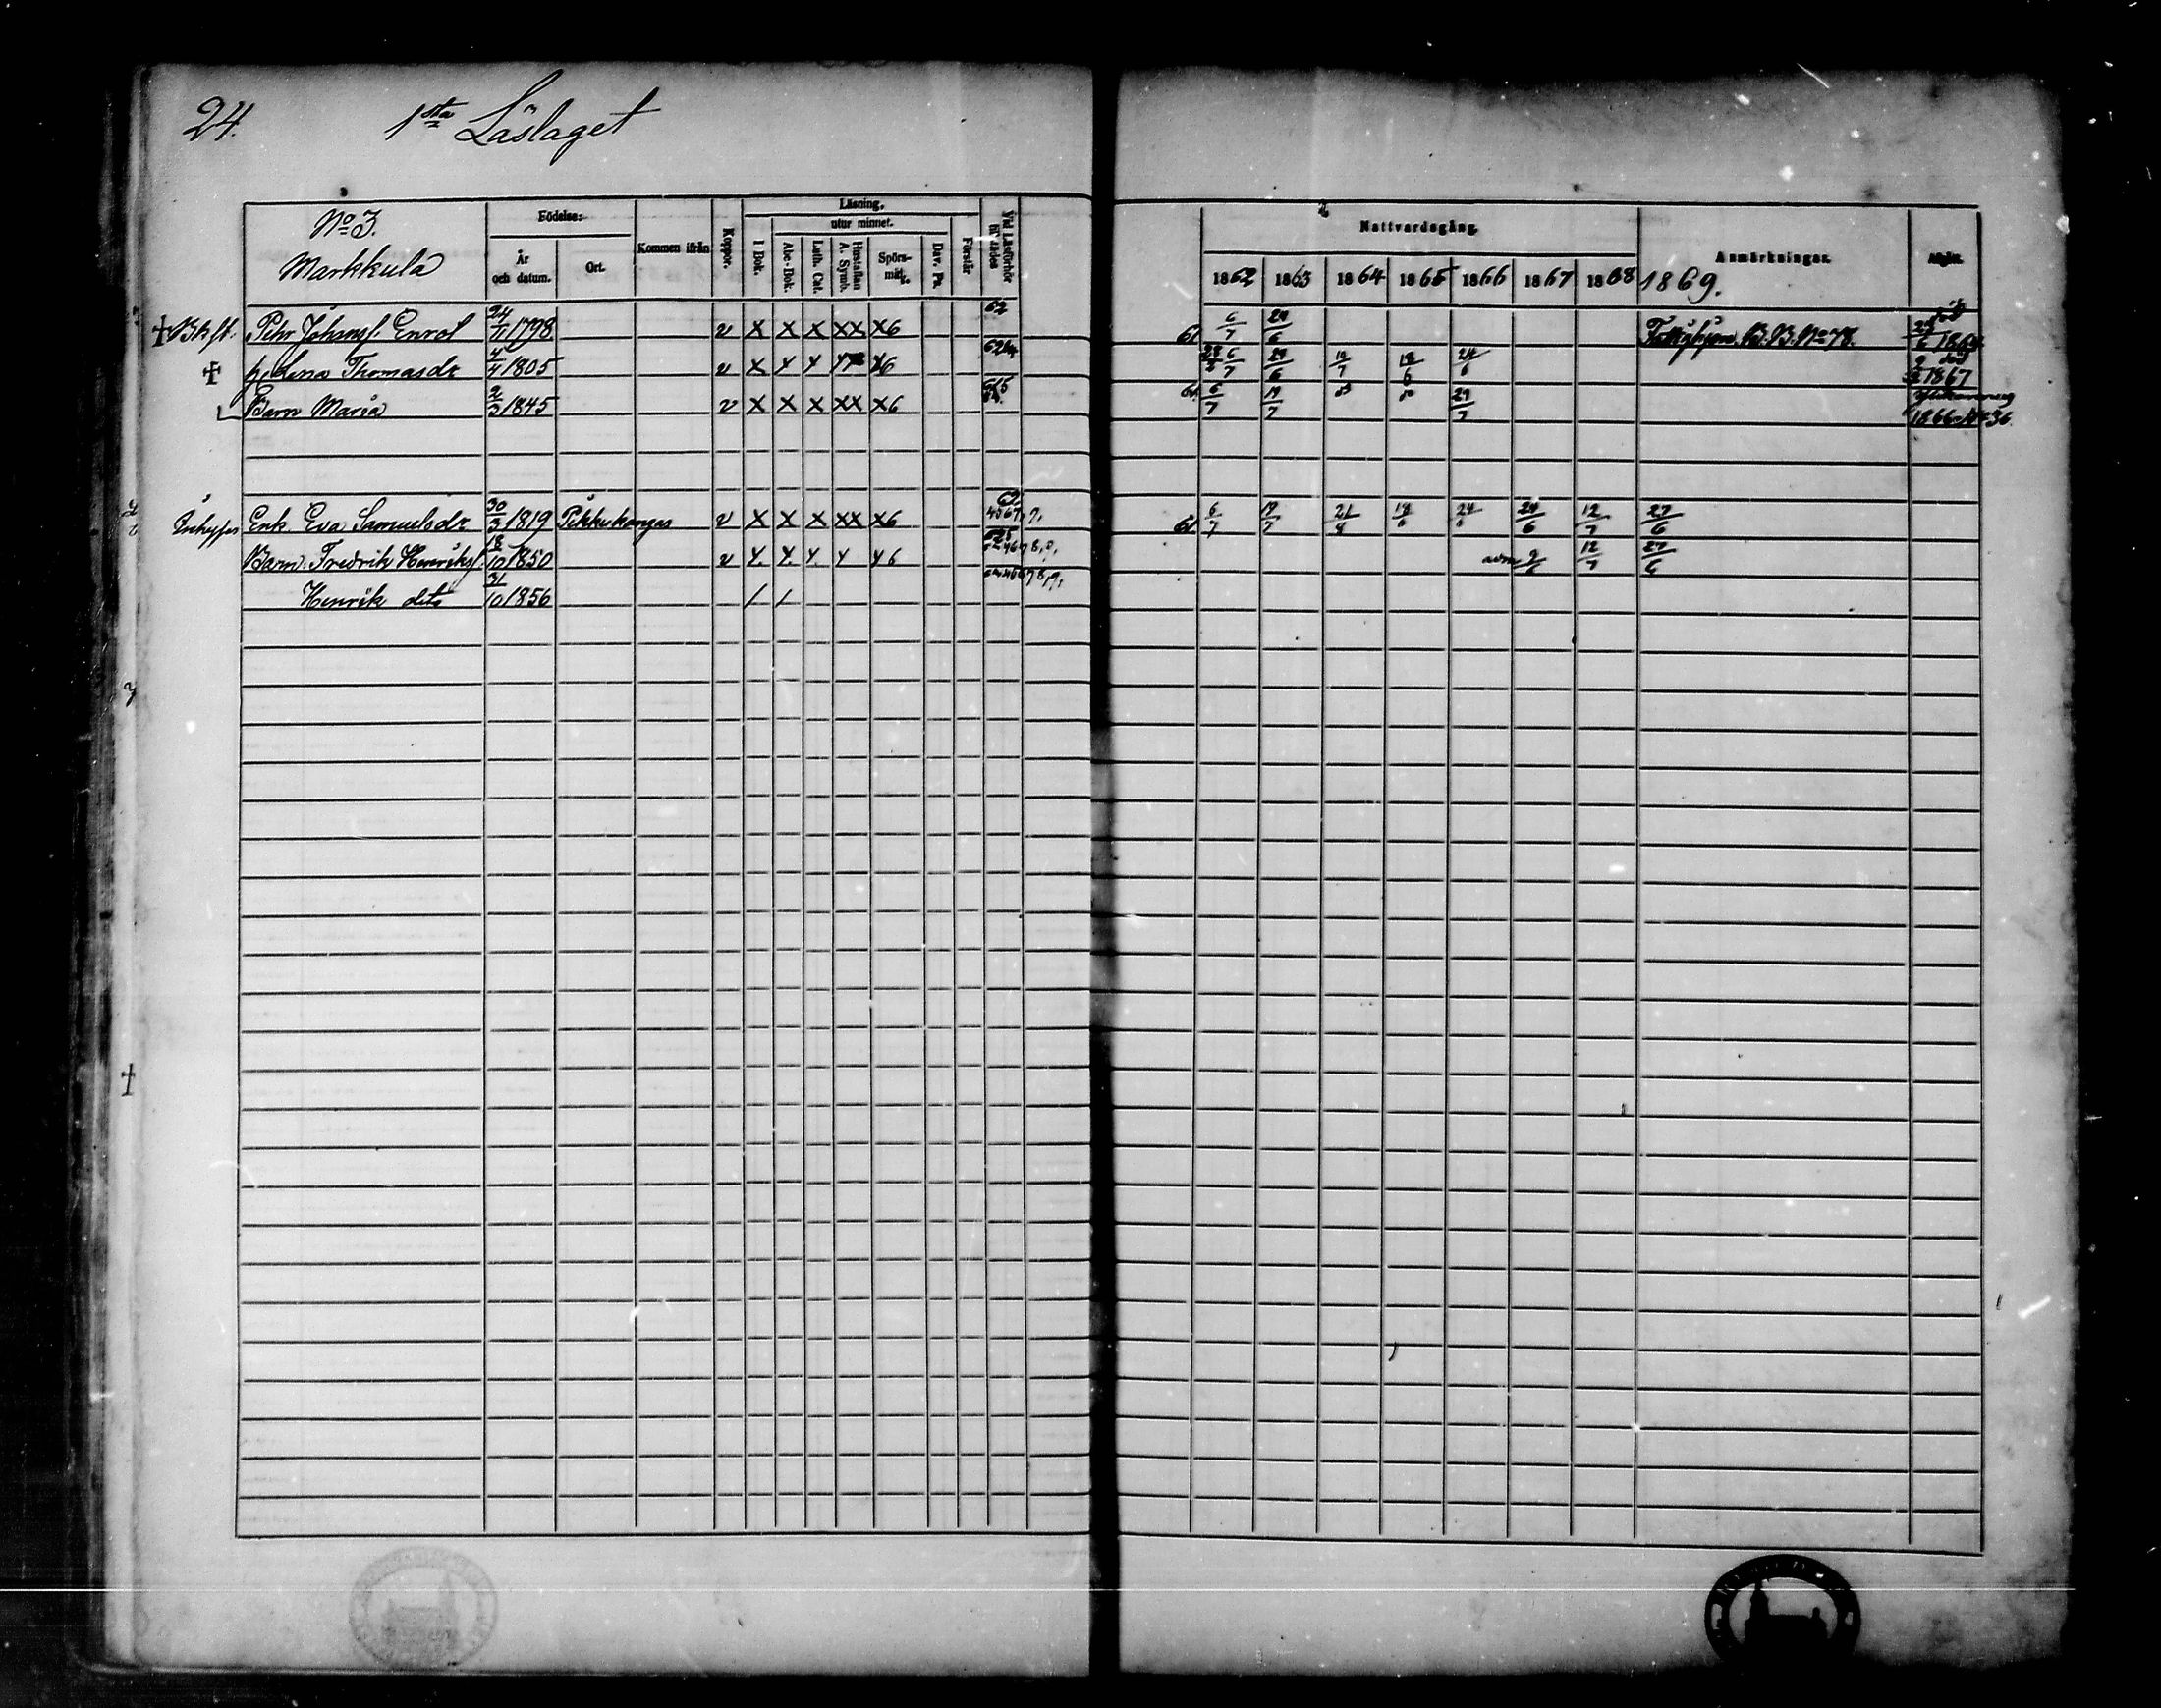 24.
1sta Läslaget
No 3.
Markkula
Födelse:
År och datum.
Ort.
Kommen ifrån
Koppor.
Läsning,
utur minnet.
I Bok.
Abc-Bok.
Luth. Cat.
Hustaflan A. Symb.
Spörsmål.
Dav. Ps.
Förstår
Vid Läsförhör
Nattvardsgång.
1862 1863 1864 1865 1866 1867 1868 1869.
Anmärkningar.
Afgån.
† Pehr Johanss. Enrot 24/11 1798. v x x x xx x6 62 61 6/7 29/6 B.B. No 78. död 25/6
† h. Lena Thomasdr 4/4 1805 v x x6 6/7 29/6 10/7 18/6 24/6 död 1867
Barn Maria 2/3 1845 v x x x xx x6 61 6/7 19/7 29/7 1866 No 36
Inhyses Enk. Eva Samuelsdr 30/3 1819 Pikkukangas v x x x xx x6 61 6/7 19/7 21/8 18/6 24/6 24/6 12/7 27/6
Barn Fredrik Henrikss. 18/10 1850 v x x x x x6 12/7 27/6
Henrik dito 31/10 1856 / /
†